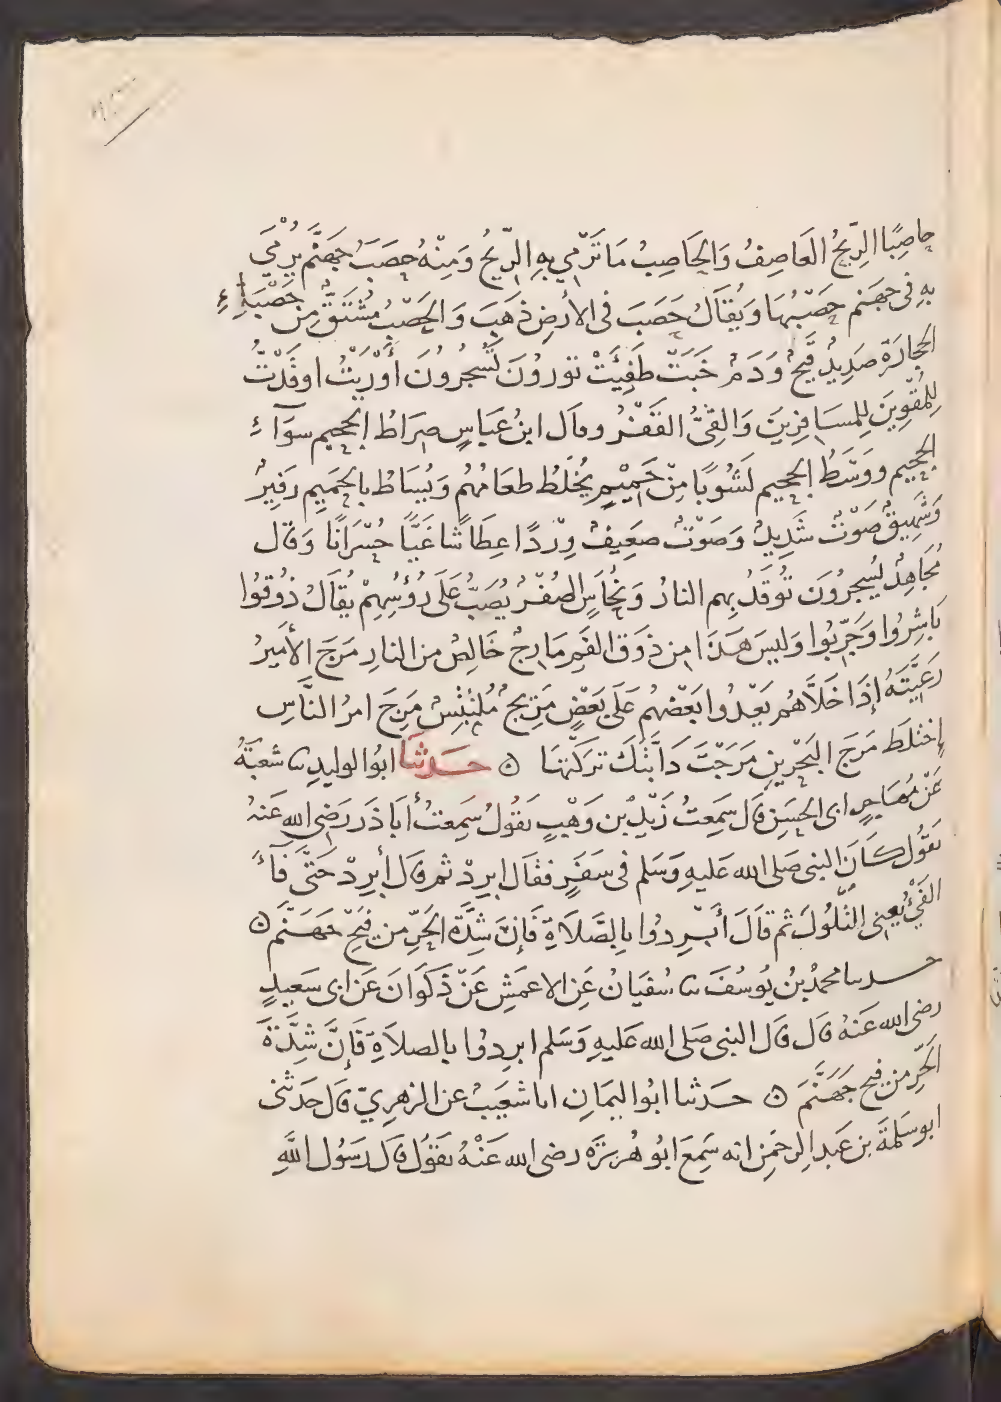 حاصِبًا الرِّيحُ العَاصِفُ وَالحَاصِبُ مَا تَرْمِي بِهِ الرِّيحُ وَمِنْهُ حَصَبُ جَهَنَّم يُرْمَى
بِهِ في جهنم حَصَبُهَا وَيُقَالُ حَصَبَ في الأرضِ ذَهَبَ وَالحَصَبُ مُشْتَقٌّ مِن حَصْبَاءِ
الحجارة صَدِيدٌ قَيْحٌ وَدَمٌ خَبَتْ طَفِئَتْ تورُونَ تَسْتَخْرِجُونَ أَوْرَيْتُ اوقَدْتُ
لِلْمُقْوِينَ لِلمسَافِرِينَ وَالقِيُّ القَفْرُ وقال ابنُ عَبَّاسٍ صِرَاطُ الجحيم سوَآءُ
الجحيم ووَسَطُ الجحيم لَشَوْبًا مِنْ حَمِيْمٍ يُخْلَطُ طعَامُهُم وَيُسَاطُ بالحَمِيمِ زفِيرٌ
وَشَهِيقٌ صَوْتٌ شَدِيدٌ وَصَوْتٌ ضعِيفٌ وِرْدًا عِطَاشًا غَيًّا خُسْرَانًا وَقال
مُجَاهِدٌ يُسجرُونَ تُوقَدُ بِهم النارُ وَنُحَاسٍ الصُّفْرُ يُصَبُّ عَلَى رُؤُسِهِمْ يُقَالُ ذُوقُوا
بَاشِرُوا وَجَرِّبُوا وَليسَ هَذَا من ذَوَقِ الفَمِ مَارِجٌ خَالِصٌ من النارِ مَرَجَ الأميرُ
رَعِيَّتَهُ إِذَا خَلَّاهُم يَعْدُوا بَعْضُهُم عَلَى بَعْضٍ مَرِيجٍ مُلْتَبِسٌ مَرِجَ امرُ النَّاسِ
اِختلَطَ مَرَجَ البَحْرَينِ مَرَجْتَ دَابَّتَكَ تَرَكْتَهَا ۞ حَدثنا ابُو الوليدِ ثنا شعبَةُ
عَنْ مُهَاجِرٍ ابى الحسَنِ قال سَمِعتُ زَيْدَ بْن وَهْبٍ يقُولُ سَمِعتُ أبَا ذَر رَضِي الله عَنهُ
يقُول كَانَ النبى صَلى الله عَليهِ وَسَلم فى سَفَرٍ فقال ابرِدْ ثم قال أبرِدْ حَتَّى فَاءَ
الفَيْءُ يَعِنى التُّلُولَ ثم قَالَ أَبْرِدُوا بِالصَّلَاةِ فَإِنَّ شِدَّةَ الحَرِّ مِن فَيْحِ جَهَنَّم ۞
حدثنا محمدُ بنُ يُوسُفَ ثنا سُفيَانُ عَنِ الاعمَشِ عَنْ ذَكوَانَ عَن ابى سَعِيدٍ
رضي الله عَنهُ قال قال النبى صَلى الله عَليهِ وَسَلم ابرِدُوا بالصلاةِ فَإِنَّ شِدَّةَ
الحَرِّ من فَيح جَهَنَّمَ ۞ حَدثنا ابُو اليَمَانِ انا شعَيبٌ عن الزهرِيّ قال حَدثنى
ابو سَلمَةَ بن عَبد الرحمَنِ انه سَمِعَ ابُو هُرَيرَةَ رضى الله عَنْهُ يقُولُ قال رَسُول اللَّهِ